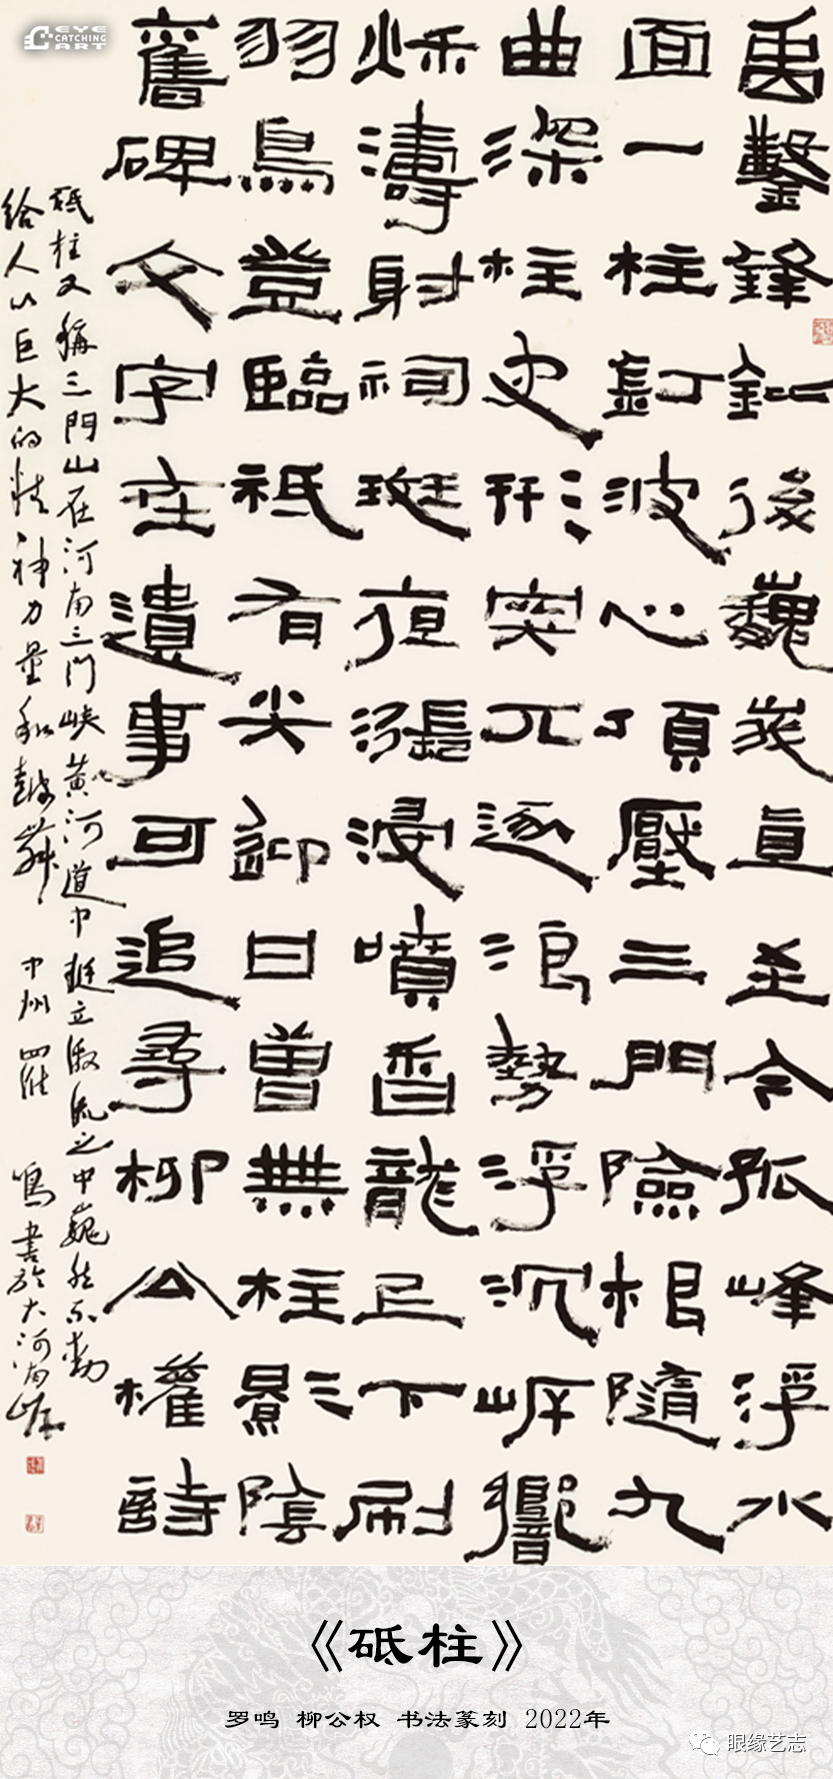 EYE CATCHING ART
禹鑿鋒鋩後巍峩直至今孤峰浮水
面一柱釘波心頂壓三門險根隨九
曲深柱史形突兀逐浪勢浮沉岍響
秌濤射祠斑夜漲浸噴香龍上下刷
羽鳥登臨祗有尖迎日曾無柱影陰
舊碑文字在遺事可追尋柳公權詩
砥柱又稱三門山在河南三门峽黃河道中挺立激流之中巍然不動
給人以巨大的精神力量和鼓舞 中州 羅鳴書於大河南岸
《砥柱》
罗鸣 柳公权 书法篆刻 2022年
眼缘艺志